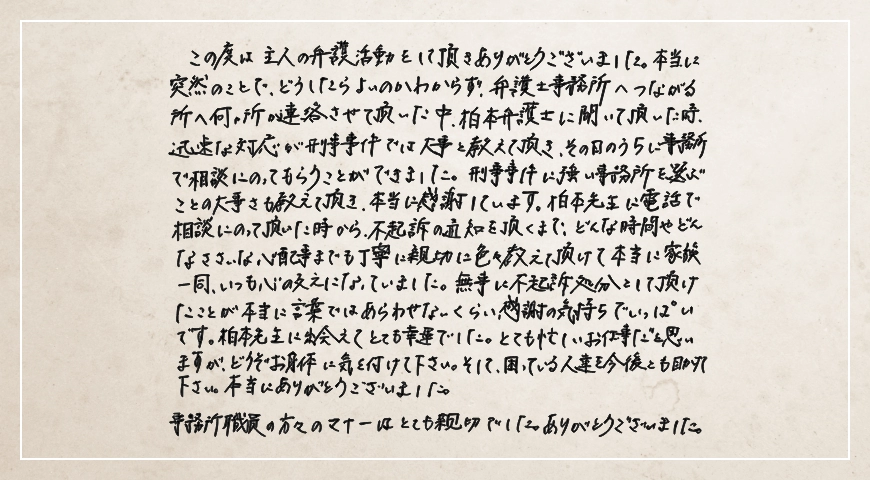 この度は 主人の弁護活動 として頂きありがとうございました。本当に
突然のことで、どうしたらよいのかわからず、弁護士事務所へつながる
所へ何ヶ所か連絡させて頂いた中、柏本弁護士に聞いて頂いた時、
迅速な対応が刑事事件では大事と教えて頂き、その日のうちに事務所
で相談にのってもらうことができました。刑事事件に強い事務所を選ぶ
ことの大事さも教えて頂き、本当に感謝しています。柏本先生に電話で
相談にのって頂いた時から、不起訴の通知を頂くまで、どんな時間やどん
なささいな心配事までも丁寧に親切に色々教えて頂けて本当に家族
一同、いつも心の支えになっていました。無事に不起訴処分として頂け
たことが本当に言葉ではあらわせないくらい、感謝の気持ちでいっぱい
です。柏本先生に出会えてとても幸運でした。とても忙しいお仕事だと思い
ますが、どうぞお身体に気を付けて下さい。そして、困っている人達を今後とも助けて
下さい。本当にありがとうございました。
事務所職員の方々のマナーはとても親切でした。ありがとうございました。